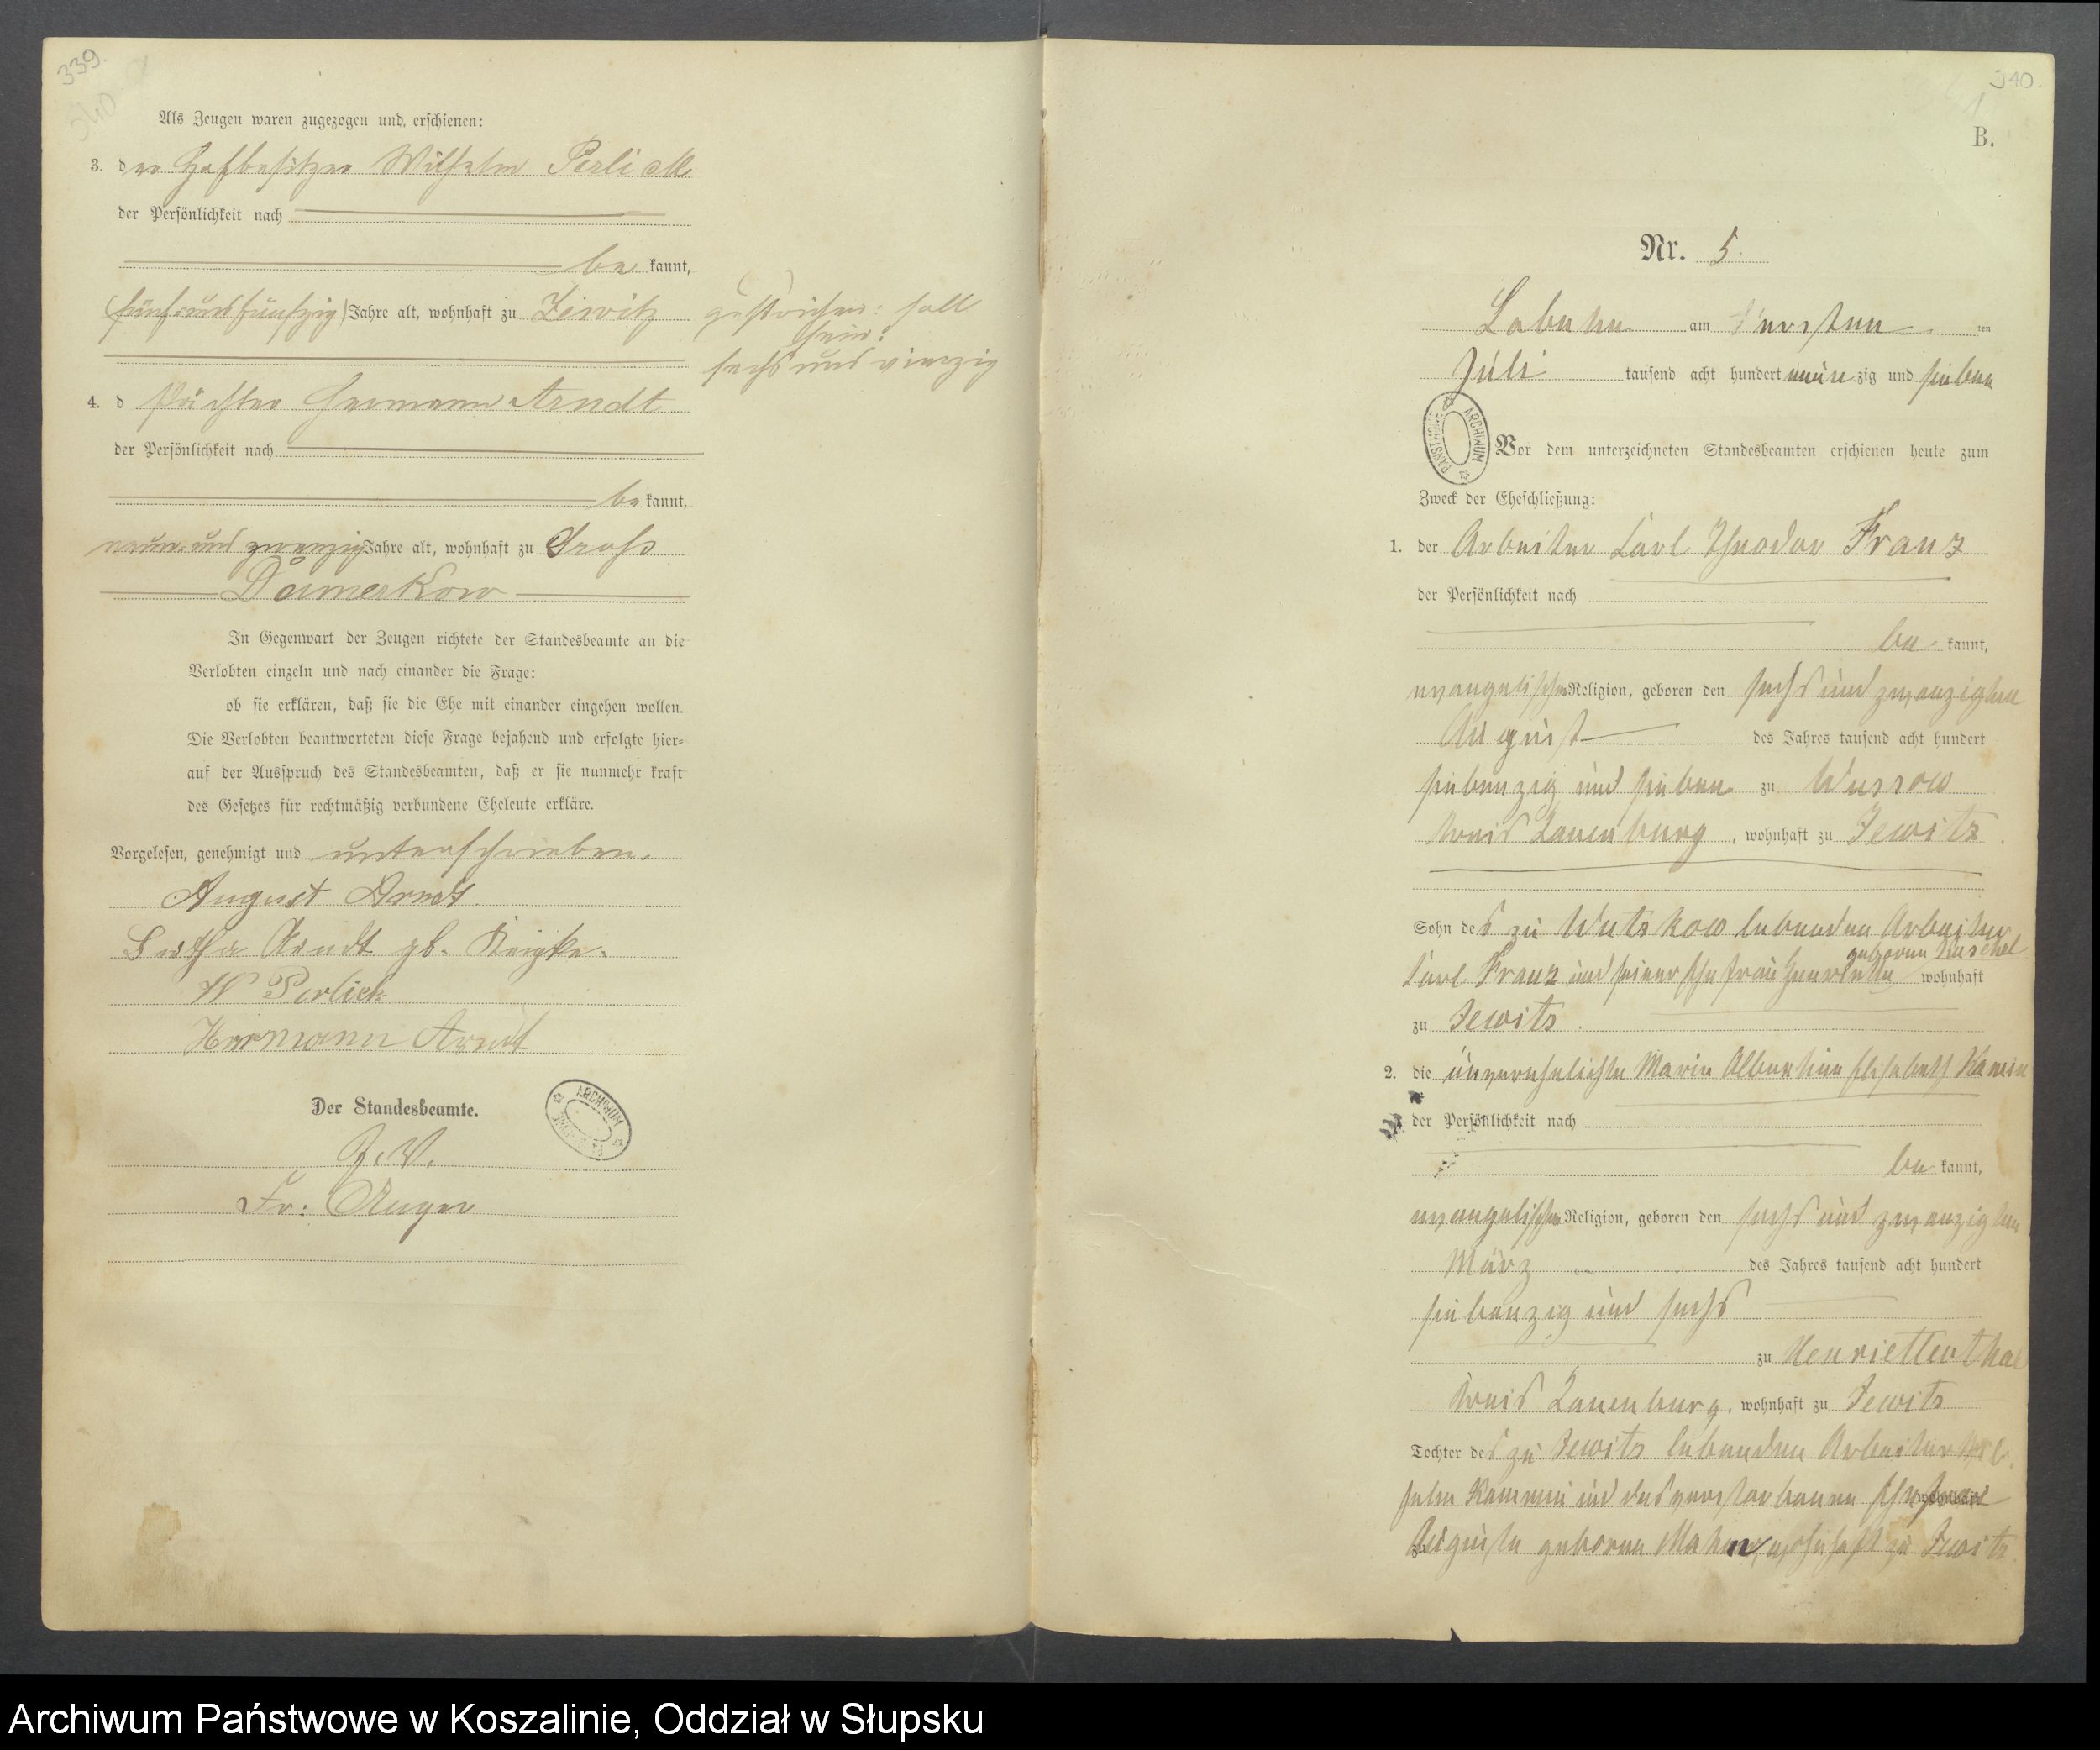 339.
340
Als Zeugen waren zugezogen und erschienen:
3. der Hofbesitzer Wilhelm Perlick
der Persönlichkeit nach
be kannt,
fünf und fünfzig Jahre alt, wohnhaft zu Jewitz
gestrichen: soll
sein:
sechs und vierzig
4. d Pächter Hermann Arndt
der Persönlichkeit nach
be kannt,
neun und zwanzig Jahre alt, wohnhaft zu Gross
Damerkow
In Gegenwart der Zeugen richtete der Standesbeamte an die
Verlobten einzeln und nach einander die Frage:
ob sie erklären, daß sie die Ehe mit einander eingehen wollen.
Die Verlobten beantworteten diese Frage bejahend und erfolgte hier-
auf der Ausspruch des Standesbeamten, daß er sie nunmehr kraft
des Gesetzes für rechtmäßig verbundene Eheleute erkläre.
Vorgelesen, genehmigt und unterschrieben.
August Arndt.
Bertha Arndt gb.
W Perlick
Hermann Arndt
Der Standesbeamte.
J. V.
Fr:
ARCHIWUM
340.
B.
Nr. 5.
Labuhn am ersten ten
Juli tausend acht hundert neun zig und sieben
ARCHIWUM PAŃSTWOWE
Vor dem unterzeichneten Standesbeamten erschienen heute zum
Zweck der Eheschließung:
1. der Arbeiter Carl Theodor Franz
der Persönlichkeit nach
be kannt,
evangelischer Religion, geboren den sechs und zwanzigsten
August des Jahres tausend acht hundert
siebenzig und sieben zu Wussow
Kreis Lauenburg, wohnhaft zu Jewitz
Sohn des zu Wutzkow lebenden Arbeiter
geborene
Carl Franz und seiner Ehefrau Henriette wohnhaft
zu Jewitz.
2. die unverehelichte Marie Albertine Elisabeth
der Persönlichkeit nach
be kannt,
evangelischer Religion, geboren den sechs und zwanzigsten
März des Jahres tausend acht hundert
siebenzig und sechs
zu Henriettenthal
Kreis Lauenburg, wohnhaft zu Jewitz
Tochter des zu Jewitz lebenden Arbeiter Wil
helm und des verstorbenen Ehefrau wohnhaft
zu Auguste geborene wohnhaft zu Jewitz
Archiwum Państwowe w Koszalinie, Oddział w Słupsku